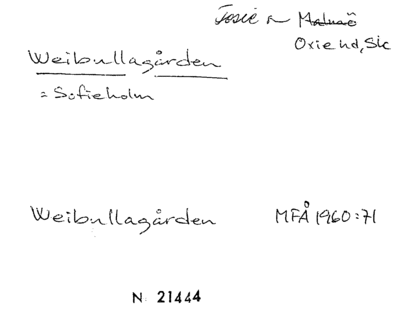 Fosie sn Malmö
Oxie hd, Sk
Weibullagården
= Sofieholm
Weibullagården MFÅ 1960:71
N 21444